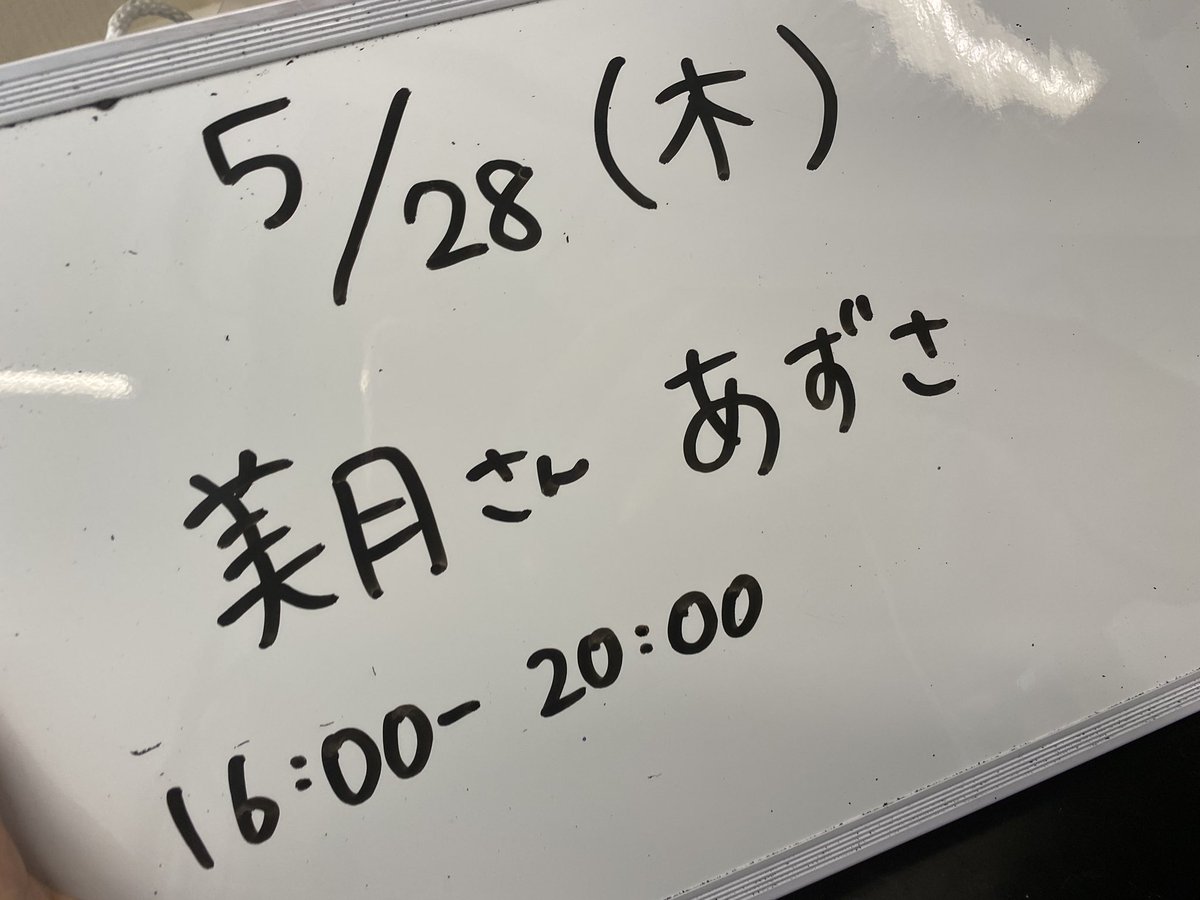 5/28(木)
美月さん あずさ
16:00-20:00